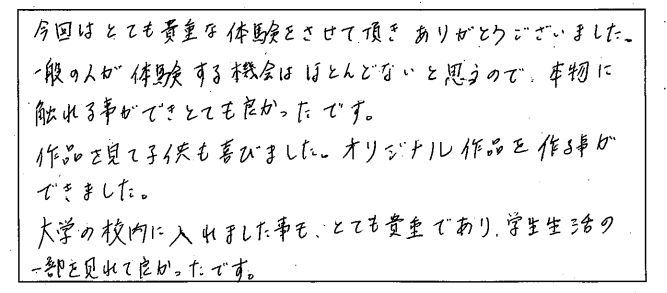 今回はとても貴重な体験をさせて頂きありがとうございました。
一般の人が体験する機会はほとんどないと思うので、本物に
触れる事ができとても良かったです。
作品を見て子供も喜びました。オリジナル作品を作る事が
できました。
大学の校内に入れました事も、とても貴重であり、学生生活の
一部を見れて良かったです。